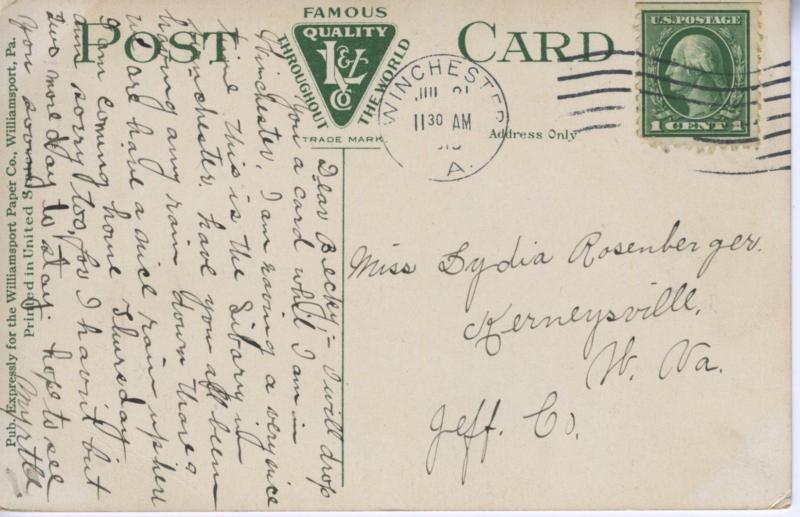 POST CARD
FAMOUS
QUALITY
L&Z
CO
THROUGHOUT THE WORLD
TRADE MARK
WINCHESTER
11 30 AM
A.
U.S. POSTAGE
1 CENT 1
Address Only
Miss Lydia Rosenberger.
Kerneysville,
W. Va.
Jeff. Co.
Dear Becky:- I will drop
you a card whil I am in
Winchester. I am having a very nice
time this is the Libary in
Winchester, have you all been
having any rain down there
we are have a nice rain up here
I am coming home Thursday
am sorry too, for I havent but
two more day to stay. hope to see
you soon
Myrtle
Pub. Expressly for the Williamsport Paper Co., Williamsport, Pa.
Printed in United States